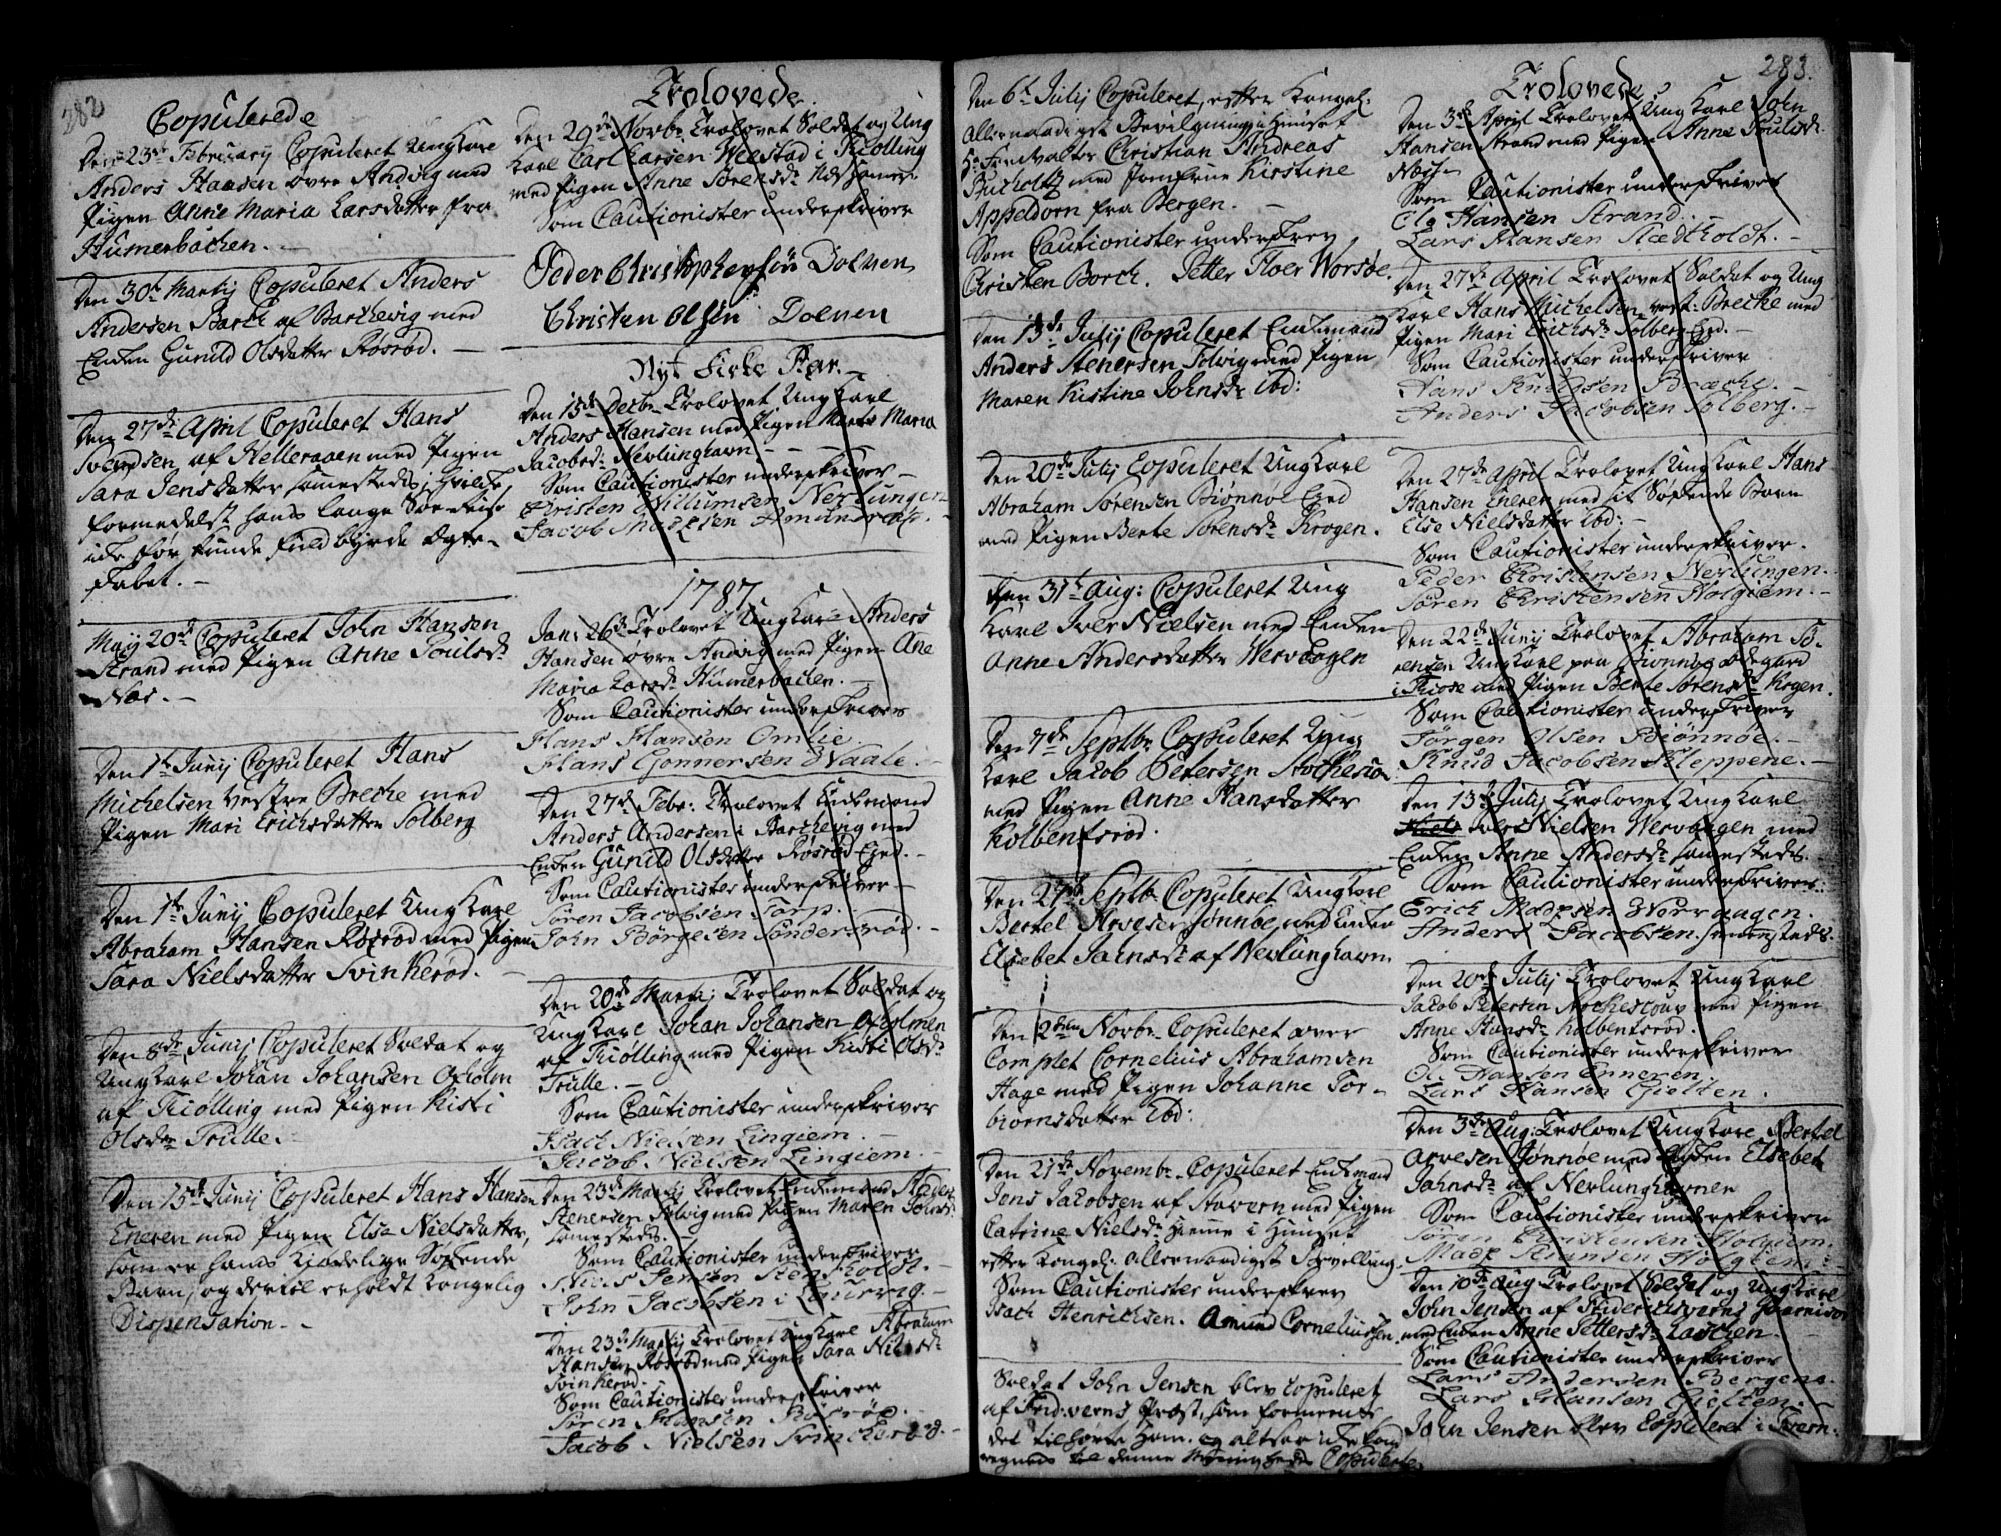 282
Copulerede
Den 23de Februarij Copuleret Ungkarl
Anders Hansen øvre Andvig med
Pigen Anne Maria Larsdatter fra
Humerbachen. -
Den 30te Martij Copuleret Anders
Andersen Barth af Barthevig med
Enken Gunild Olsdatter Rosrød. -
Den 27de April Copuleret Hans
Svendsen af Helleraaen med Pigen
Sara Jensdatter sammesteds, hvilke
formedelst hans lange Søe-Reise
icke før kunde fuldbyrde Ægte-
skabet. -
Maij 20de Copuleret John Hansen
Strand med Pigen Anne Poulsdr
Næs. -
Den 1te Junij Copuleret Hans
Michelsen Vestre Breche med
Pigen Mari Erichsdatter Solberg
Den 1te Junij Copuleret Ungkarl
Abraham Hansen Rosrød med Pigen
Sara Nielsdatter Svinkerød. -
Den 8de Junij Copuleret Soldat og
Ungkarl Johan Johansen Oxholm
af Kiølling med Pigen Kisti
Olsdr Trulle. -
Den 15de Junij Copuleret Hans Hansen
Eneren med Pigen Else Nielsdatter,
som er hans kiødelige Søskende
Barn, og dertil erholdt Kongelig
Dispensation. -
Trolovede.
Den 29de Novbr Trolovet Soldat og Ung
Karl Carl Larsen Weestad i Kiølling
med Pigen Anne Sørensdr
Som Cautionister underskriver
Peder Christophersøn Dolven
Christen Olsøn Dolven
Nyt Kirke Aar. -
Den 15de Decbr Trolovet Ungkarl
Anders Hansen med Pigen Marte Maria
Jacobsdr Nevlunghavn. -
Som Cautionister underskriver -
Christen Willumsen Nerlungen
Jacob Madsen Amundrød. -
1787.
Jan: 26de Trolovet Ungkarl Anders
Hansen øvre Andvig med Pigen Ane
Maria Larsdr Humerbachen. -
Som Cautionister underskriver
Hans Hansen Omlie.
Hans Gonnersen Waale. -
Den 27de Febr: Trolovet Enkemand
Anders Andersen i Barthevig med
Enken Gunild Olsdatter Rosrød Eied. -
Som Cautionister underskriver -
Søren Jacobsen Torp. -
John Børgesen Søndersrød. -
Den 20de Martij Trolovet Soldat og
Ungkarl Johan Johansen Oxholmen
af Kiølling med Pigen Kisti Olsdr
Trulle. -
Som Cautionister underskriver
Isach Nielsen Lingiem. -
Jacob Nielsen Lingiem. -
Den 23de Martij Trolovet Enkemand Anders
Stenersen Solvig med Pigen Maren Johnsdr
sammesteds.
Som Cautionister underskriver
Niels Jensen Stensholdt. -
John Jacobsen i Laurvig. -
Den 23de Martij Trolovet Ungkarl Abraham
Hansen Rosrød med Pigen Sara Nielsdr
Svinkerød. -
Som Cautionister underskriver
Søren Hansen Rosrød. -
Jacob Nielsen Svinckerød. -
283.
Den 6te Julij Copuleret, efter Kongel:
Allernaadigst Bevilgning i Huuset
Hr Forvalter Christian Andreas
Bucholtz med Jomfrue Kirstine
Appeldorn fra Bergen. -
Som Cautionister underskrev
Christen Borch. Petter Floer Worsøe.
Den 13de Julij Copuleret Enkemand
Anders Stenersen Solvig med Pigen
Maren Kistine Johnsdr Ibd:
Den 20de Julij Copuleret Ungkarl
Abraham Sørensen Biønnøe Eied
med Pigen Berte Sørensdr Krogen.
Den 31te Aug: Copuleret Ung
Karl Iver Nielsen med Enken
Anne Andersdatter Wervaagen
Den 7de Septbr Copuleret Ung
Karl Jacob Petersen
med Pigen Anne Hansdatter
Kolbensrød.
Den 27de Septbr Copuleret Ungkarl
Bertel Arvesen Jonnøe med Enken
Elsebet Jahnsdr af Nevlunghavn.
Den 2den Novbr Copuleret over
Complet Cornelius Abrahamsen
Hage med Pigen Johanne Tor-
biørnsdatter Ibd:
Den 21de Novembr Copuleret Enkemand
Jens Jacobsen af Stavern med Pigen
Catrine Nielsdr Hiemme i Huuset
efter Kongel: Allernaadigst Bevilling.
Som Cautionister underskrev
Isach Henrichsen. Amund Corneliussen.
Soldat John Jensen blev Copuleret
af Fridrverns Præst, som formeente
det tilhørte ham, og altsaa icke kom
regnes til denne Menigheds Copulerte.
Trolovede
Den 3de April Trolovet Ungkarl John
Hansen Strand med Pigen Anne Poulsdr
Næss -
Som Cautionister underskriver
Ole Hansen Strand. -
Lars Hansen Stædtholdt. -
Den 27de April Trolovet Soldat og Ung
Karl Hans Michelsen vest: Breche med
Pigen Mari Erichsdr Solberg Eied. -
Som Cautionister underskriver
Hans Knudsen Bræche. -
Anders Jacobsen Solberg. -
Den 27de April Trolovet Ungkarl Hans
Hansen Eneren med sit Søskende Barn
Else Nielsdatter Ibd: -
Som Cautionister underskriver.
Peder Christensen Nerlungen.
Søren Christensen Holgiem. -
Den 22de Junij Trolovet Abraham Sø-
rensen Ungkarl paa Biønnøe Ødegaard
i Kiose med Pigen Berte Sørensdr Krogen.
Som Cautionister underskriver
Jørgen Olsen Biønnøe. -
Knud Jacobsen Kleppene. -
Den 13de Julij Trolovet Ungkarl
Niels Iver Nielsen Wervaagen med
Enken Anne Andersdr sammesteds.
Som Cautionister underskriver.
Erich Madsen Wervaagen.
Anders Jacobsen sammesteds.
Den 20de Julij Trolovet Ungkarl
Jacob Petersen med Pigen
Anne Hansdr Kolbensrød.
Som Cautionister underskriver
Ole Hansen Enneren.
Lars Hansen Gielten.
Den 3de Aug: Trolovet Ungkarl Bertel
Arvesen Jonnøe med Enken Elsebet
Jahnsdr af Nevlunghavnen
Som Cautionister underskriver
Søren Christensen Holgiem.
Madz Hansen Holgiem. -
Den 10de Aug: Trolovet Soldat og Ungkarl
John Jensen af Friderichsværns Guarnison
med Enken Anne Pettersdr Laschen.
Som Cautionister underskriver
Lars Andersen Bergene.
Lars Hansen Gielten.
John Jensen blev Copuleret i Fvern.